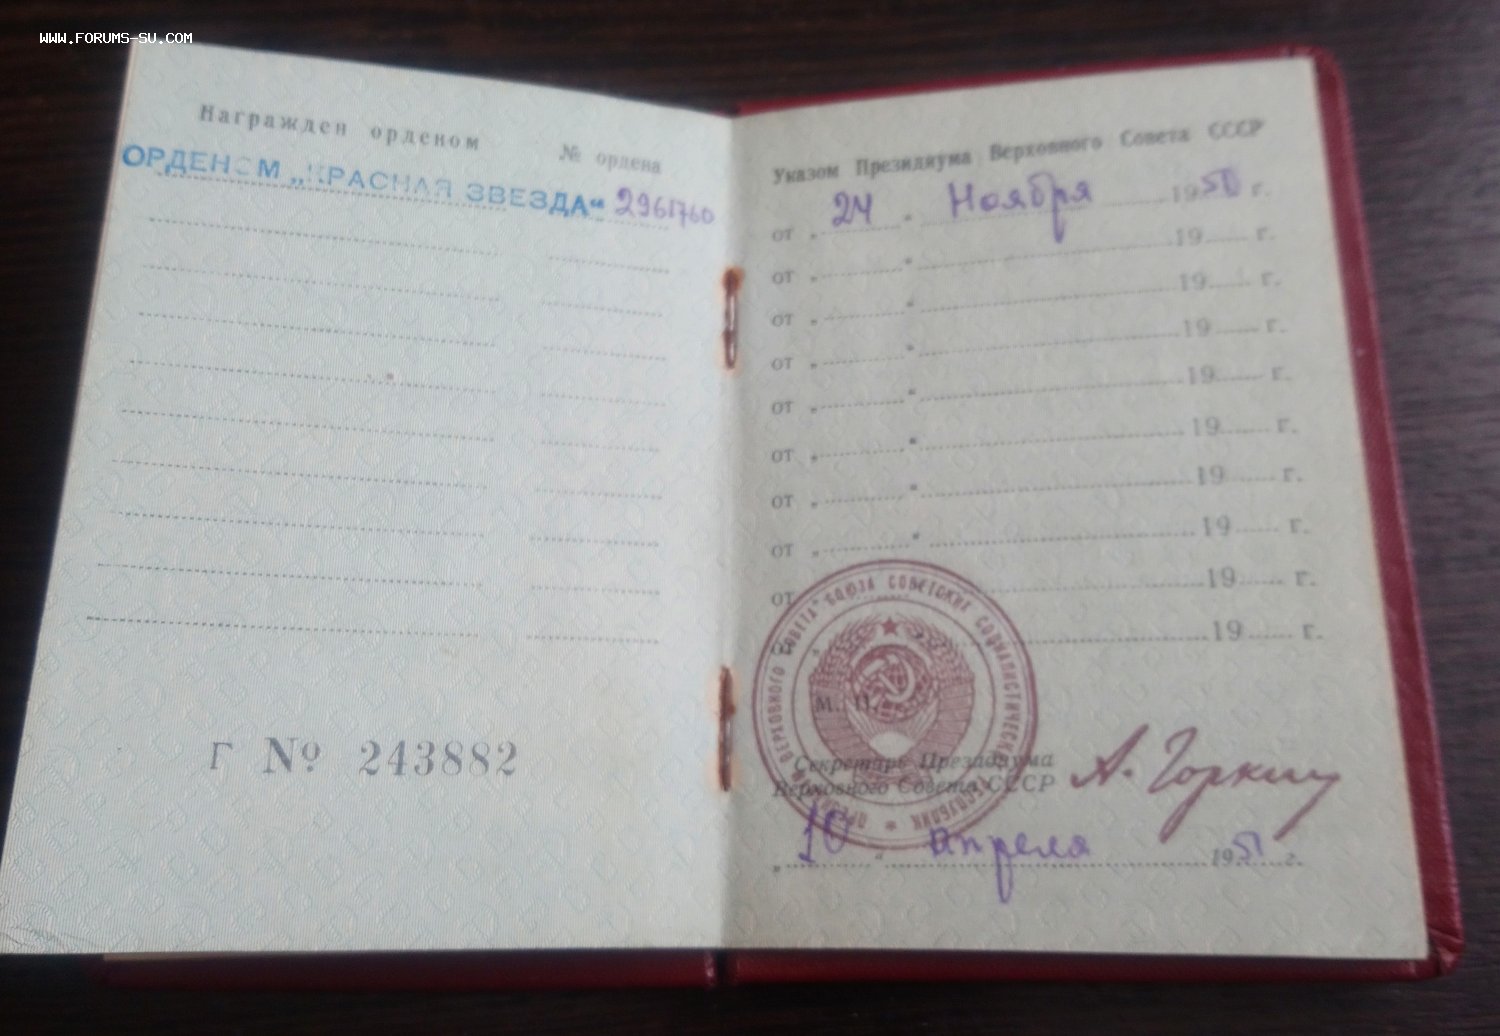 WWW.FORUMS-SU.COM
Награжден орденом
№ ордена
ОРДЕНОМ „КРАСНАЯ ЗВЕЗДА“ 2961760
Г № 243882
Указом Президиума Верховного Совета СССР
от „24“ Ноября 1950 г.
от „ “ 19 г.
от „ “ 19 г.
от „ “ 19 г.
от „ “ 19 г.
от „ “ 19 г.
от „ “ 19 г.
от „ “ 19 г.
от „ “ 19 г.
от „ “ 19 г.
ПРЕЗИДИУМ ВЕРХОВНОГО СОВЕТА СОЮЗА СОВЕТСКИХ СОЦИАЛИСТИЧЕСКИХ РЕСПУБЛИК
М. П.
Секретарь Президиума
Верховного Совета СССР А. Горкин
„10“ апреля 1951 г.